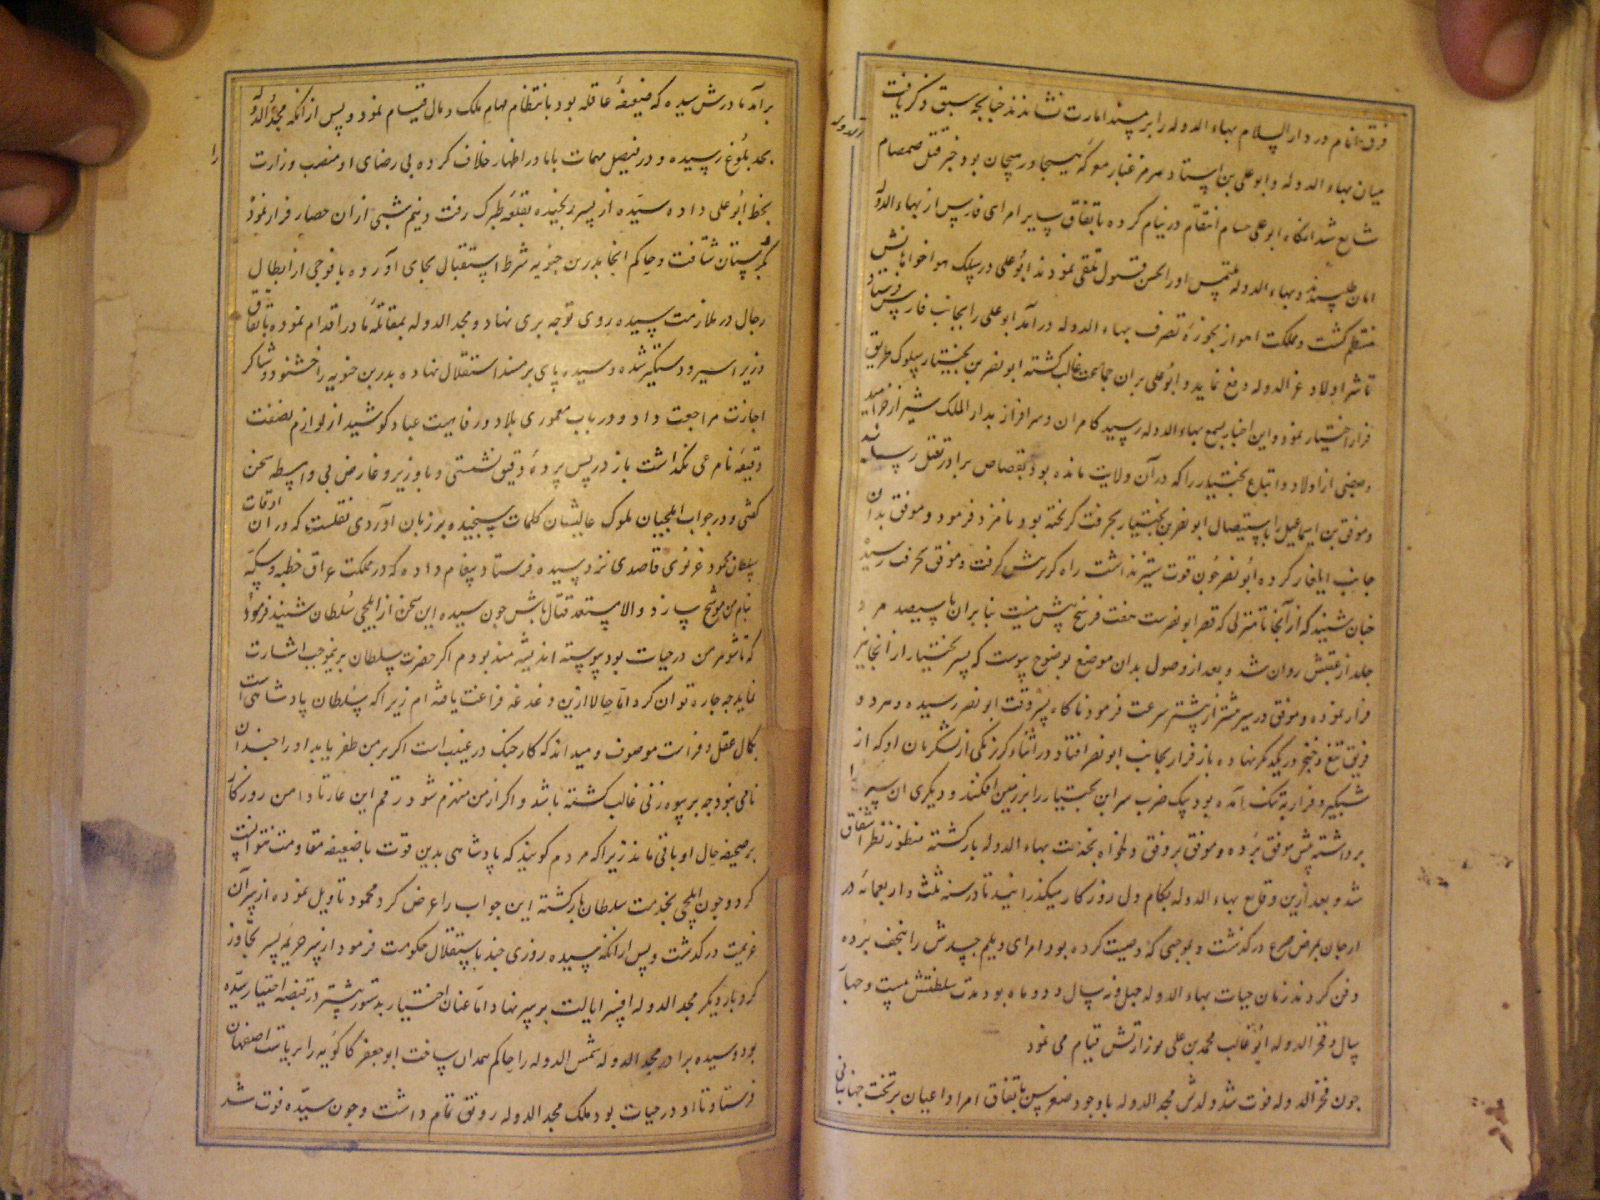 فرق انام در دار السلام بهاء الدوله را بر مسند امارت نشاندند چنانچه سبق ذکر یافت
میان بهاء الدوله و ابو علی بن استاد هرمز غبار معرکه هیجا در هیجان بود خبر قتل صمصام الدوله
شایع شد آنگاه ابو علی حسام انتقام در نیام کرده باتفاق سایر امرای فارس از بهاء الدوله
امان طلبیدند و بهاء الدوله ملتمس او را بحسن قبول تلقی نمودند ابو علی در سلک هواخواهانش
منتظم گشت و مملکت اهواز بحوزه تصرف بهاء الدوله درآمد ابو علی را بجانب فارس فرستاد
تا شر اولاد عز الدوله دفع نماید و ابو علی بران جماعت غالب گشته ابو نصر بن بختیار سلوک طریق
فرار اختیار نمود و این اخبار بسمع بهاء الدوله رسید کامران و سرافراز بدار الملک شیراز خرامید
و بعضی از اولاد و اتباع بختیار را که در آن ولایت مانده بود بقصاص برادر بقتل رسانید
و موفق بن اسمعیل را باستیصال ابو نصر بن بختیار که بجرفت گریخته بود نامزد فرمود و موفق بدان
جانب ایلغار کرده ابو نصر چون قوت ستیز نداشت راه گریز پیش گرفت و موفق بجرفت رسید
چنان شنید که از آنجا تا منزلی که مقر ابو نصرست هفت فرسخ بیش نیست بنابران با سیصد مرد
جلد از عقبش روان شد و بعد از وصول بدان موضع بوضوح پیوست که پسر بختیار از آنجا نیز
فرار نموده و موفق در سیر بیشتر از پیشتر سرعت فرمود ناگاه بسر وقت ابو نصر رسیده و هر دو
فریق تیغ و خنجر در یکدیگر نهاده باز فرار بجانب ابو نصر افتاد و در اثناء گریز یکی از لشکریان او که از
شبگیر و فرار به تنک آمده بود بیک ضرب سر ابن بختیار را بر زمین افکند و دیگری آن سر را
برداشته پیش موفق برده و موفق بر وفق دلخواه بخدمت بهاء الدوله بازگشته منظور نظر اشفاق
شد و بعد ازین وقایع بهاء الدوله بکام دل روزگار میگذرانید تا در سنه ثلث و اربعمائه در
ارجان بمرض صرع درگذشت و بموجبی که وصیت کرده بود امرای دیلم جسدش را بنجف برده
دفن کردند زمان حیات بهاء الدوله چهل و نه سال و دو ماه بود مدت سلطنتش بیست و چهار
سال و فخر الدوله ابو غالب محمد بن علی بوزارتش قیام می نمود
چون فخر الدوله فوت شد ولدش مجد الدوله باوجود صغر سن باتفاق امرا و اعیان بر تخت جهانبانی
برآمد مادرش سیده که ضعیفه عاقله بود بانتظام مهام ملک و مال قیام نمود و پس از آنکه مجد الدوله
بحد بلوغ رسیده و در فیصل مهمات با مادر اظهار خلاف کرده بی رضای او منصب وزارت را
بخطیر ابو علی داده سیده از پسر رنجیده بقلعه طبرک رفت و نیم شبی از ان حصار فرار نموده
بخوزستان شتافت و حاکم آنجا بدر بن حسنویه شرط استقبال بجای آورده با فوجی از ابطال
رجال در ملازمت سیده روی توجه بری نهاد و مجد الدوله بمقاتله مادر اقدام نموده باتفاق
وزیر اسیر و دستگیر شده و سیده پای بر مسند استقلال نهاده بدر بن حسنویه را خشنود و شاکر
اجازت مراجعت داد و در باب معموری بلاد و رفاهیت عباد کوشید از لوازم نصفت
دقیقه نامرعی نگذاشت باز در پس پرده دقیق نشستی و با وزیر و عارض بی واسطه سخن
گفتی و در جواب ایلچیان ملوک عالیشان کلمات سنجیده بر زبان آوردی نقلست که در ان اوقات
سلطان محمود غزنوی قاصدی نزد سیده فرستاد پیغام داده که در مملکت عراق خطبه و سکه
بنام من موشح سازد و الا مستعد قتال باش چون سیده این سخن از ایلچی سلطان شنید فرمود
که تا شوهر من در حیات بود پیوسته اندیشه مند بودم که اگر حضرت سلطان بریموجب اشارت
نماید چه چاره توان کرد اما حالا ازین دغدغه فراغت یافته ام زیرا که سلطان پادشاهی است
بکمال عقل و فراست موصوف و میداند که کار جنک در غیب است اگر بر من ظفر یابد او را چندان
نامی نبود چه بر بیوه زنی غالب گشته باشد و اگر از من منهزم شود رقم این عار تا دامن روزگار
بر صحیفه حال او باقی ماند زیرا که مردم گویند که پادشاهی بدین قوت با ضعیفه مقاومت نتوانست
کرد و چون ایلچی بخدمت سلطان بازگشته این جواب را عرض کرد محمود تاویل نموده از سر آن
عزیمت درگذشت و پس از آنکه سیده روزی چند باستقلال حکومت فرمود از سر جریمه پسر تجاوز
کرد بار دیگر مجد الدوله افسر ایالت بر سر نهاد اما عنان اختیار بدستور پیشتر در قبضه اختیار سیده
بود و سیده برادر مجد الدوله شمس الدوله را حاکم همدان ساخت ابو جعفر کاکویه را بریاست اصفهان
فرستاد تا او در حیات بود ملک مجد الدوله رونق تمام داشت و چون سیده فوت شد